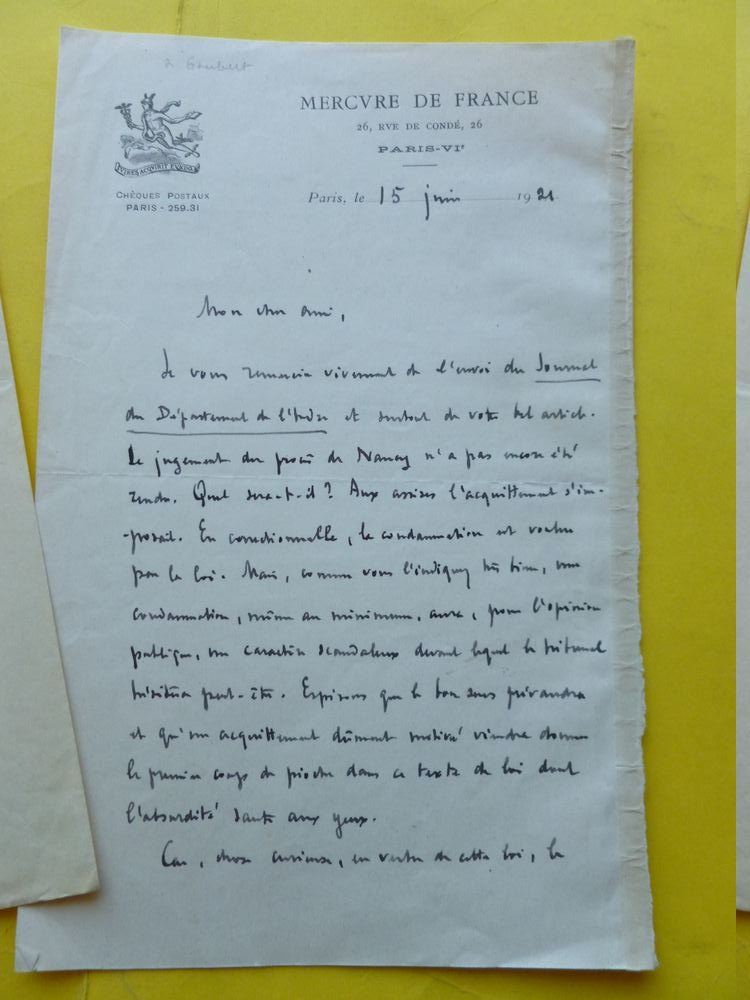 à Gaubert
MERCVRE DE FRANCE
26, RVE DE CONDÉ, 26
PARIS-VIᵉ
VIRES ACQVIRIT EVNDO
CHÈQUES POSTAUX
PARIS - 259.31
Paris, le 15 juin 1921
Mon cher ami,
Je vous remercie vivement de l'envoi du Journal
du Département de l'Indre et surtout de votre bel article.
Le jugement du procès de Nancy n'a pas encore été
rendu. Quel sera-t-il ? Aux assises l'acquittement s'im-
-posait. En correctionnelle, la condamnation est voulue
par la loi. Mais, comme vous l'indiquez très bien, une
condamnation, même au minimum, aura, pour l'opinion
publique, un caractère scandaleux devant lequel le tribunal
hésitera peut-être. Espérons que le bon sens prévaudra
et qu'un acquittement dûment motivé viendra donner
le premier coup de pioche dans ce texte de loi dont
l'absurdité saute aux yeux.
Car, chose curieuse, en vertu de cette loi, le